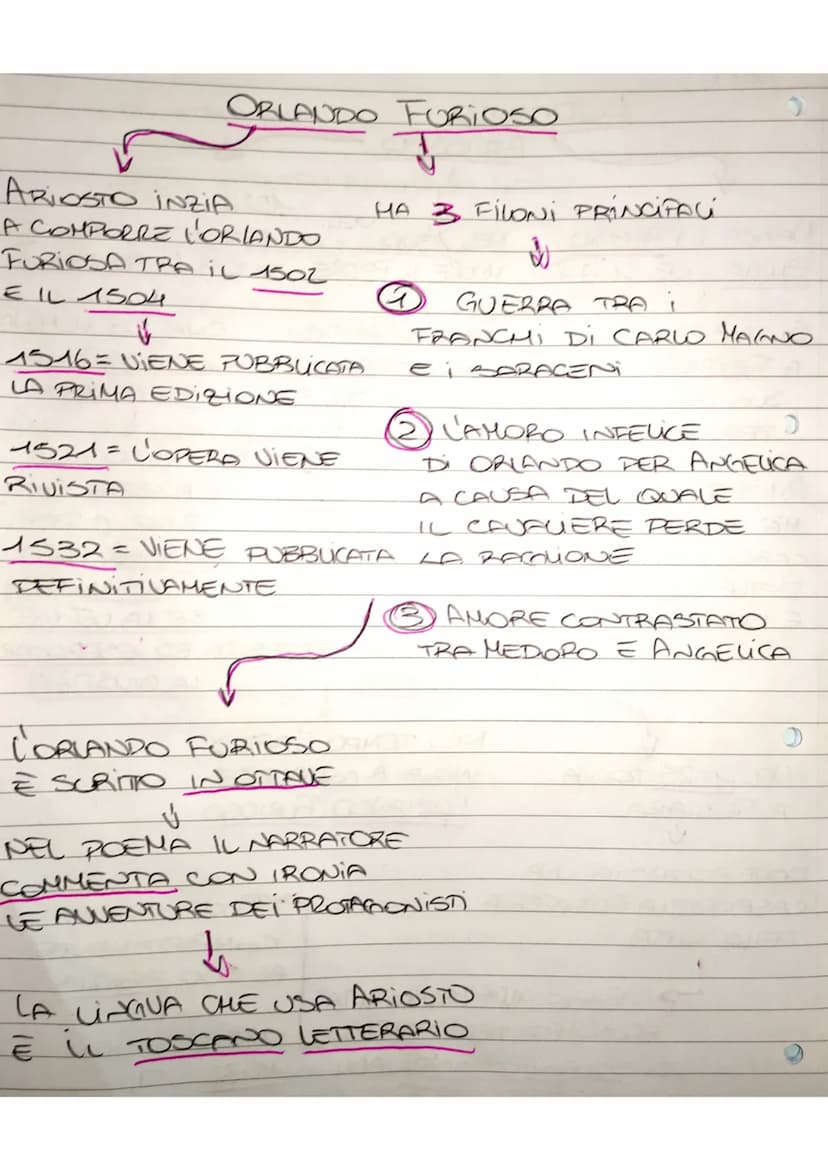 ORLANDO FURIOSO
ARIOSTO INZIA
A COMPORRE L'ORLANDO
FURIOSA TRA IL 1502
E IL 1504
1516 = VIENE PUBBLICATA
LA PRIMA EDIZIONE
1521 = L'OPERA VIENE
RIVISTA
1532 = VIENE PUBBLICATA
DEFINITIVAMENTE
HA 3 FILONI PRINCIPALI
1 GUERRA TRA I
FRANCHI DI CARLO MAGNO
E I SARACENI
2 L'AMORO INFELICE
DI ORLANDO PER ANGELICA
A CAUSA DEL QUALE
IL CAVALIERE PERDE
LA RAGIONE
3 AMORE CONTRASTATO
TRA MEDORO E ANGELICA
L'ORLANDO FURIOSO
È SCRITTO IN OTTAVE
NEL POEMA IL NARRATORE
COMMENTA CON IRONIA
LE AVVENTURE DEI PROTAGONISTI
LA LINGUA CHE USA ARIOSTO
È IL TOSCANO LETTERARIO